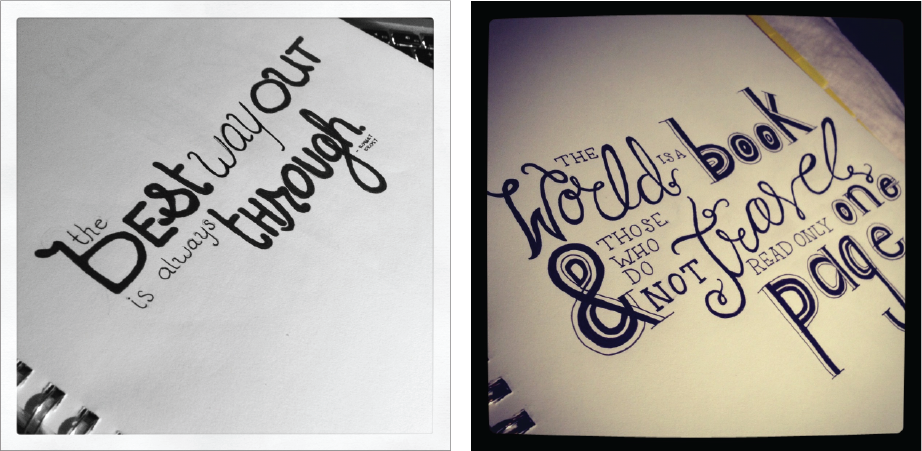 the BESt way OUT
is always tHrough
- ROBERT FROST
THE World IS A book
& THOSE
WHO
DO
NOT travel
READ ONLY one
page